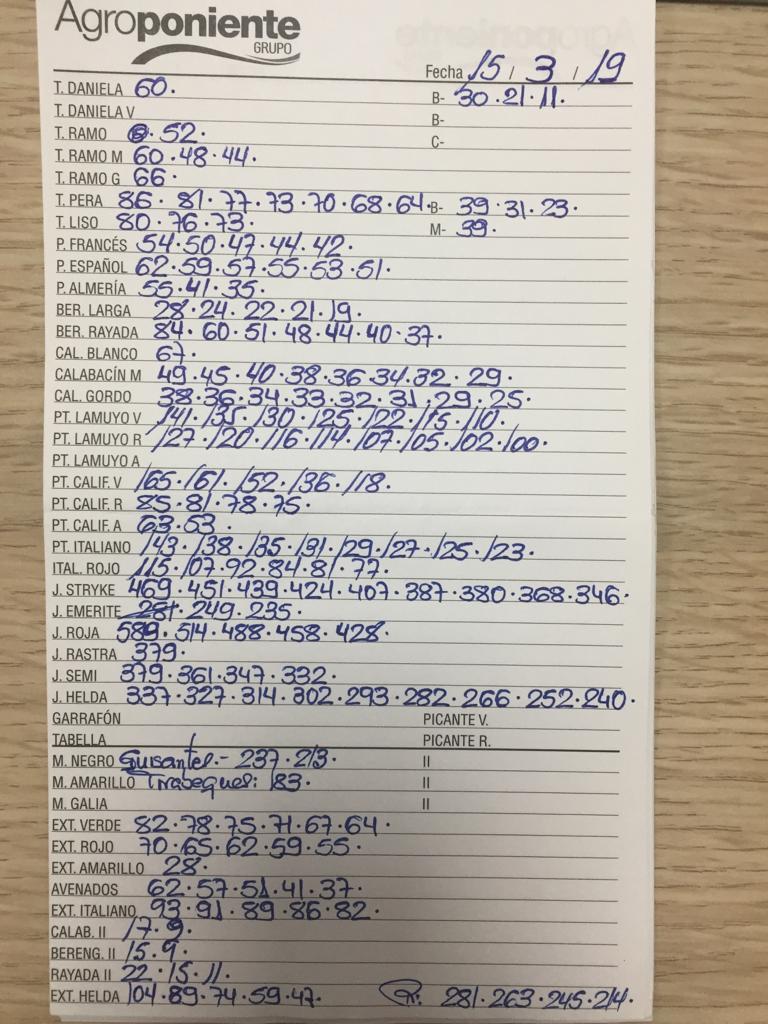 Agroponiente
GRUPO
Fecha 15 / 3 / 19
T. DANIELA 60. B- 30.21.11.
T. DANIELA V B-
T. RAMO 52. C-
T. RAMO M 60.48.44.
T. RAMO G 66.
T. PERA 86.81.77.73.70.68.64. B- 39.31.23.
T. LISO 80.76.73. M- 39.
P. FRANCÉS 54.50.47.44.42.
P. ESPAÑOL 62.59.57.55.53.51.
P. ALMERÍA 55.41.35.
BER. LARGA 28.24.22.21.19.
BER. RAYADA 84.60.51.48.44.40.37.
CAL. BLANCO 67.
CALABACÍN M 49.45.40.38.36.34.32.29.
CAL. GORDO 38.36.34.33.32.31.29.25.
PT. LAMUYO V 141.135.130.125.122.115.110.
PT. LAMUYO R 127.120.116.114.107.105.102.100.
PT. LAMUYO A
PT. CALIF. V 165.161.152.136.118.
PT. CALIF. R 85.81.78.75.
PT. CALIF. A 63.53.
PT. ITALIANO 143.138.135.131.129.127.125.123.
ITAL. ROJO 115.107.92.84.81.77.
J. STRYKE 469.451.439.424.407.387.380.368.346.
J. EMERITE 281.249.235.
J. ROJA 589.514.488.458.428.
J. RASTRA 379.
J. SEMI 379.361.347.332.
J. HELDA 337.327.314.302.293.282.266.252.240.
GARRAFÓN PICANTE V.
TABELLA PICANTE R.
M. NEGRO Guisantes.- 237.213. II
M. AMARILLO Tirabeques: 183. II
M. GALIA II
EXT. VERDE 82.78.75.71.67.64.
EXT. ROJO 70.65.62.59.55.
EXT. AMARILLO 28.
AVENADOS 62.57.51.41.37.
EXT. ITALIANO 93.91.89.86.82.
CALAB. II 17.9.
BERENG. II 15.9.
RAYADA II 22.15.11.
EXT. HELDA 104.89.74.59.47. R. 281.263.245.214.